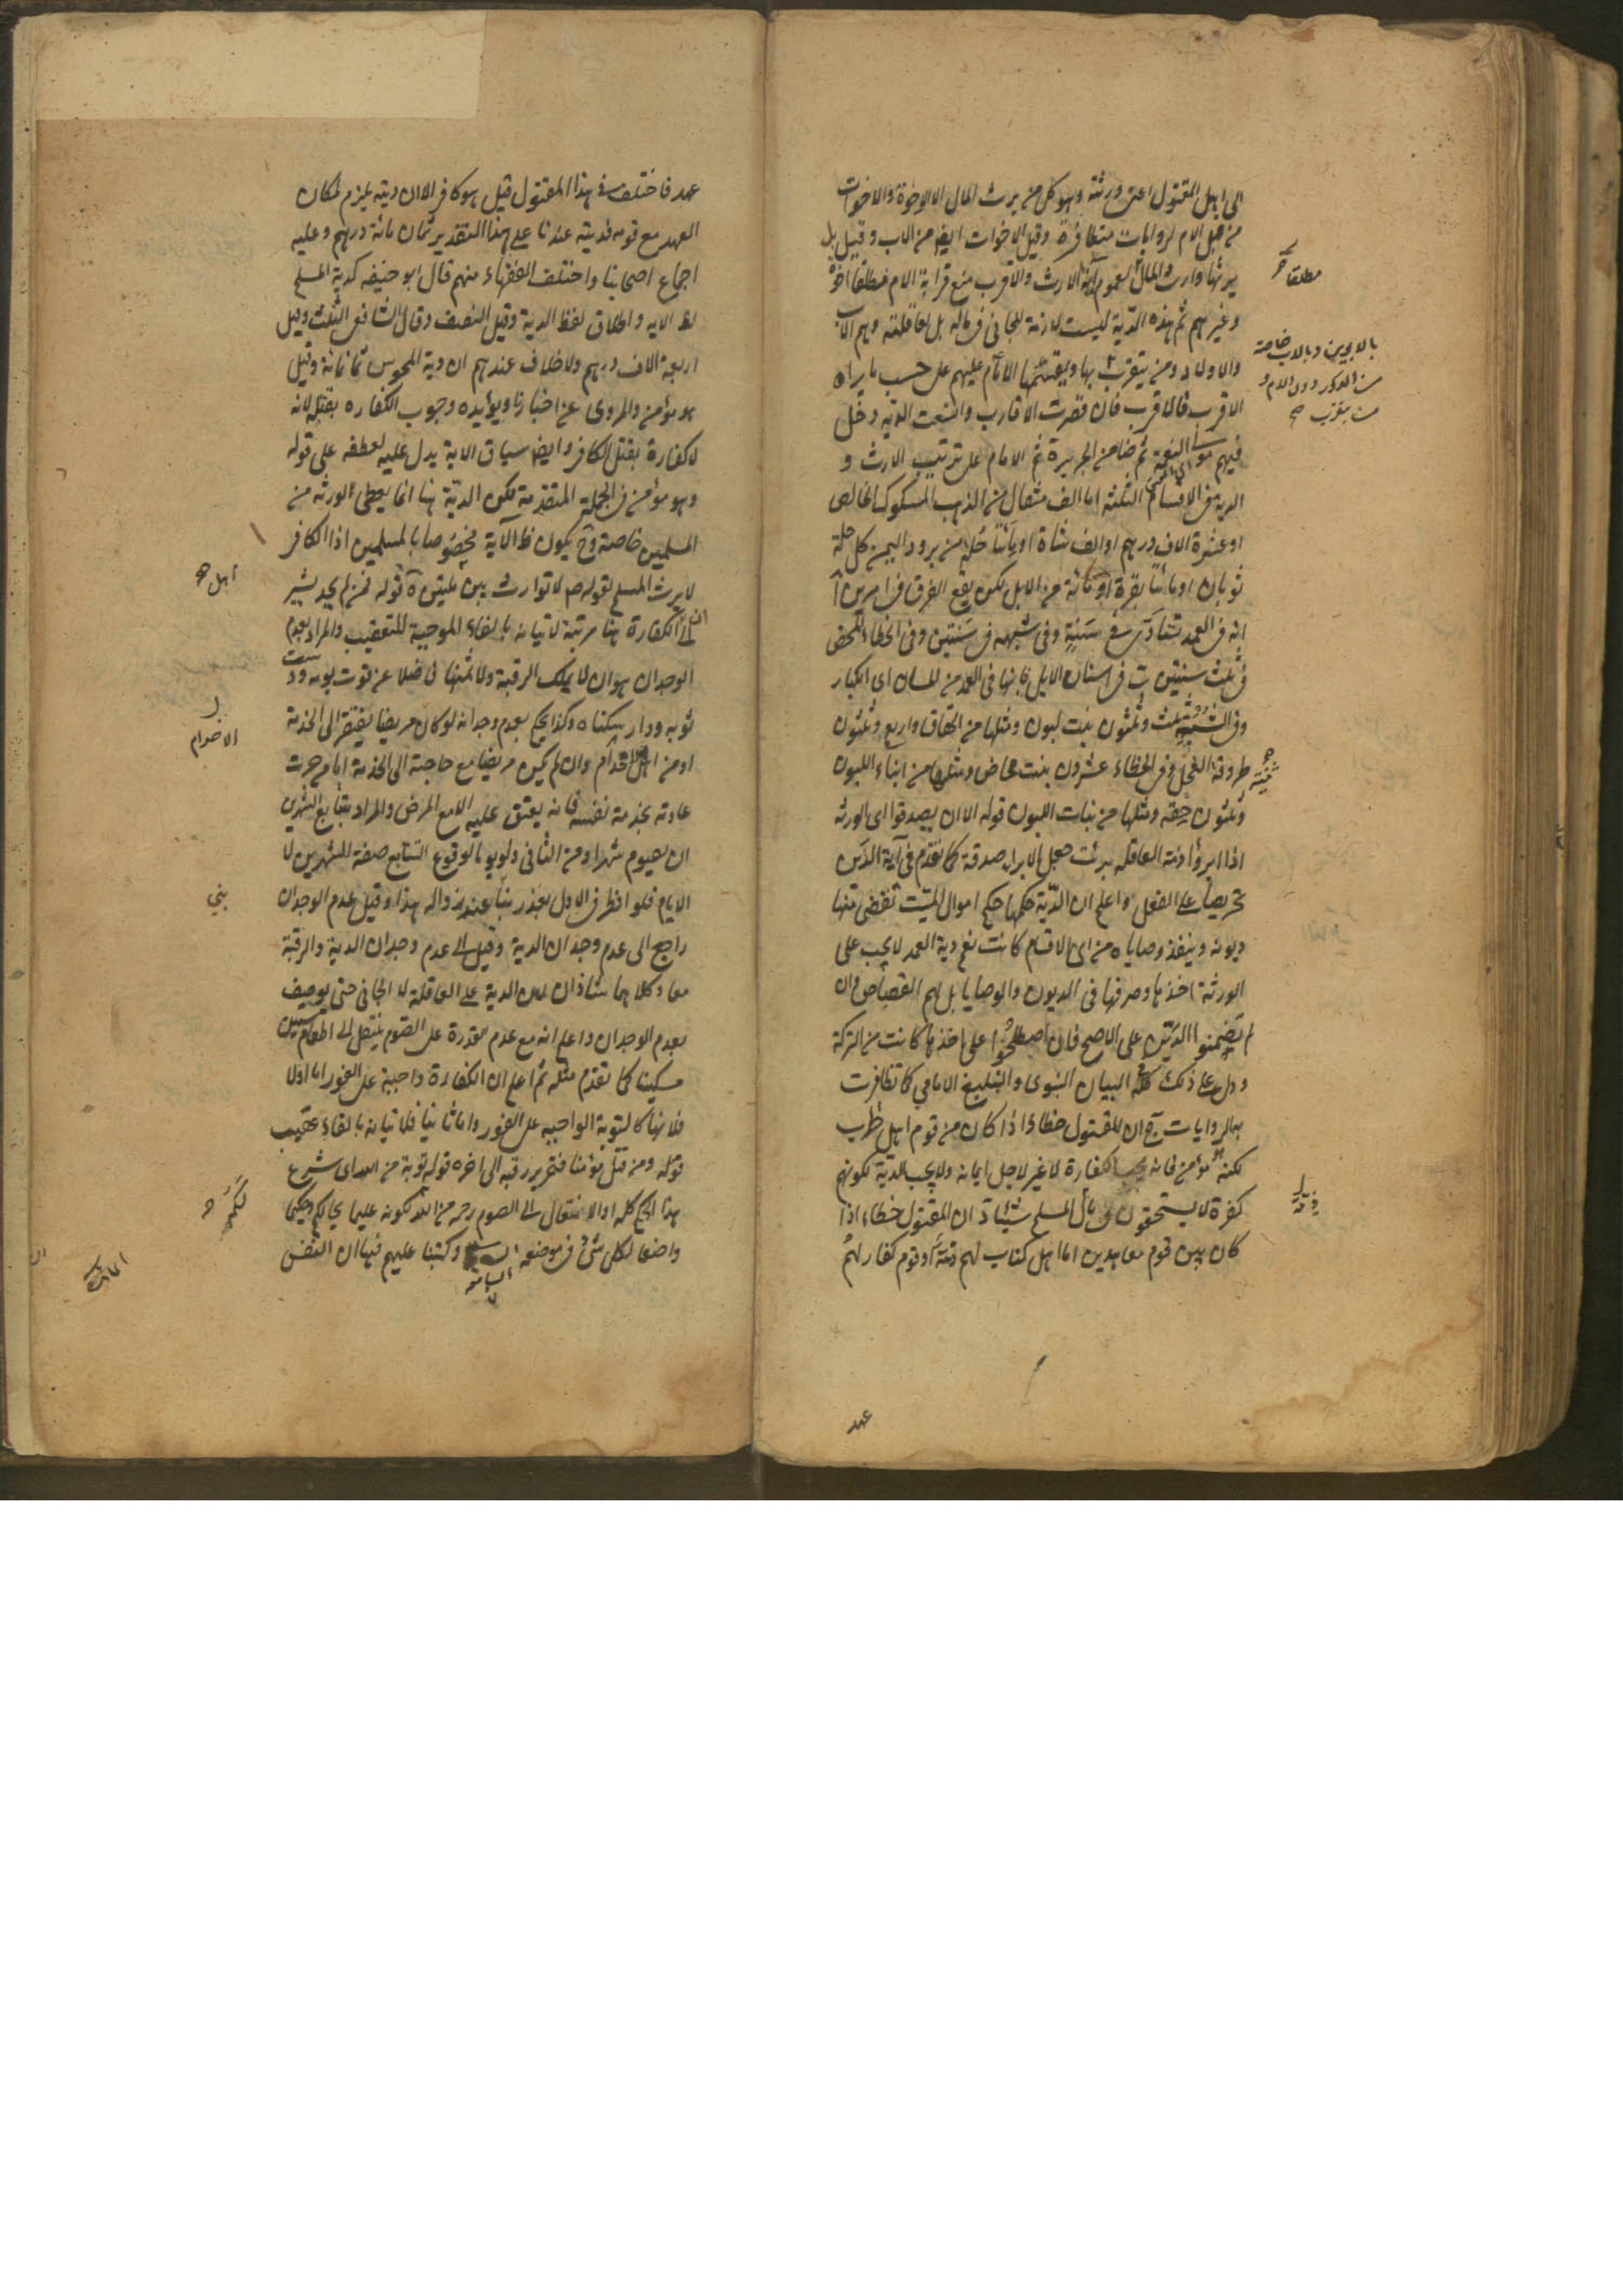 الى اهل المقتول اعنى ورثته وهو كل من يرث المال الا الاخوة والاخوات
من قبل الام لروايات متظافرة وقيل الاخوات ايضا من الاب وقيل بل
يرثها وارث المال لعموم آية الارث والاقرب منع قرابة الام مطلقا اخوة
مطلقا
وغيرهم ثم هذه الدية ليست لازمة للجانى فى ماله بل لعاقلته وهم الاب
والاولاد ومن يتقرب بها ويقسمها الامام عليهم على حسب ما يراه
بالابوين وبالاب خاصة
من الذكور دون الام و
من يتقرب صح
الاقرب فالاقرب فان قصرت الاقارب واتسعت الدية دخل
فيهم مولى النعمة ثم ضامن الجريرة ثم الامام على ترتيب الارث و
الدية فى الاقسام الثلثة اما الف مثقال من الذهب المسكوك الخالص
او عشرة الاف درهم او الف شاة او مأتا حلة من برود اليمن كل حلة
ثوبان او مأتا بقرة او مائة من الابل لكن يقع الفرق فى امرين آ
انه فى العمد تستأدى فى سنة وفى شبهه فى سنتين وفى الخطاء المحض
فى ثلث سنين ب فى اسنان الابل فانها فى العمد من المسان اى الكبار
وفى الشبيه ثلث وثلثون بنت لبون ومثلها من الحقاق واربع وثلثون
ثنية طروقة الفحل وفى الخطاء عشرون بنت مخاض ومثلها من ابناء اللبون
وثلثون حقة ومثلها من بنات اللبون قوله الا ان يصدقوا اى الورثة
اذا ابرؤا ذمة العاقلة برئت جعل الابراء صدقة كما تقدم فى آية الدين
تحريصا على الفعل واعلم ان الدية حكمها حكم اموال الميت تقضى منها
ديونه وينفذ وصاياه من اى الاقسام كانت نعم دية العمد لا يجب على
الورثة اخذها وصرفها فى الديون والوصايا بل لهم القصاص وان
لم يضمنوا الدين على الاصح فان اصطلحوا على اخذها كانت من التركة
ودل على ذلك كله البيان النبوى والتبليغ الامامي كما تظافرت
به الروايات ج ان المقتول خطاء اذا كان من قوم اهل حرب
لكنه مؤمن فانه يجب الكفارة لا غير لاجل ايمانه ولا يجب الدية لكونهم
كفرة لا يستحقون من مال المسلم شيئا د ان المقتول خطاء اذا
كان بين قوم معاهدين اما اهل كتاب لهم ذمة او قوم كفار لهم
ذمة
عهد
عهد فاختلف فى هذا المقتول قيل هو كافر الا ان ديته يلزم لمكان
العهد مع قومه فديته عندنا على هذا التقدير ثمان مائة درهم وعليه
اجماع اصحابنا واختلف الفقهاء منهم قال ابو حنيفه كدية المسلم
لظ الايه واطلاق لفظ الدية وقيل النصف وقال الشافعى الثلث وقيل
اربعة الاف درهم ولا خلاف عندهم ان دية المجوس ثمانمائة وقيل
هو مؤمن والمروى عن اخبارنا ويؤيده وجوب الكفاره بقتله لانه
لا كفارة بقتل الكافر وايضا سياق الاية يدل عليه لعطفه على قوله
وهو مؤمن فى الجملة المتقدمة لكن الدية هنا انما يعطى الورثه من
المسلمين خاصة وح يكون ظ الآية مخصوصا بالمسلمين اذ الكافر
اهل صح
لا يرث المسلم لقوله ص لا توارث بين ملتين ه قوله فمن لم يجد يشير
الى ان الكفارة هنا مرتبة لاتيانه بالفاء الموجبة للتعقيب والمراد بعدم
الوجدان هو ان لا يملك الرقبة ولا ثمنها فاضلا عن قوت يومه ودست
ثوبه ودار يسكناه وكذا يحكم بعدم وجدانه لو كان مريضا يفتقر الى الخدمة
الاخدام
او من اهل الاخدام وان لم يكن مريضا مع حاجته الى الخدمة اما من جرت
عادته بخدمة نفسه فانه يعتق عليه الا مع المرض والمراد بتتابع الشهرين
ان يصوم شهرا ومن الثانى ولو يوما لوقوع التتابع صفة للشهرين لا
الايام فلو افطر فى الاول لعذر بنا عند زواله هذا وقيل عدم الوجدان
بني
راجع الى عدم وجدان الدية وقيل الى عدم وجدان الدية والرقبة
معا وكلاهما شاذان لان الدية على العاقلة لا الجانى حتى يوصف
بعدم الوجدان واعلم انه مع عدم القدرة على الصوم ينتقل الى اطعام ستين
مسكينا كما تقدم مثله ثم اعلم ان الكفارة واجبة على الفور اما اولا
فلانها كالتوبة الواجبه على الفور واما ثانيا فلاتيانه بالفاء عقيب
قوله ومن قتل مؤمنا فتحرير رقبه الى اخره قوله توبة من الله اى شرع
هذا الحكم كله او الانتقال الى الصوم رحمه من الله لكونه عليما بحالكم وحكيما
واضعا لكل شئ فى موضعه السابعة وكتبنا عليهم فيها ان النفس
السابعة